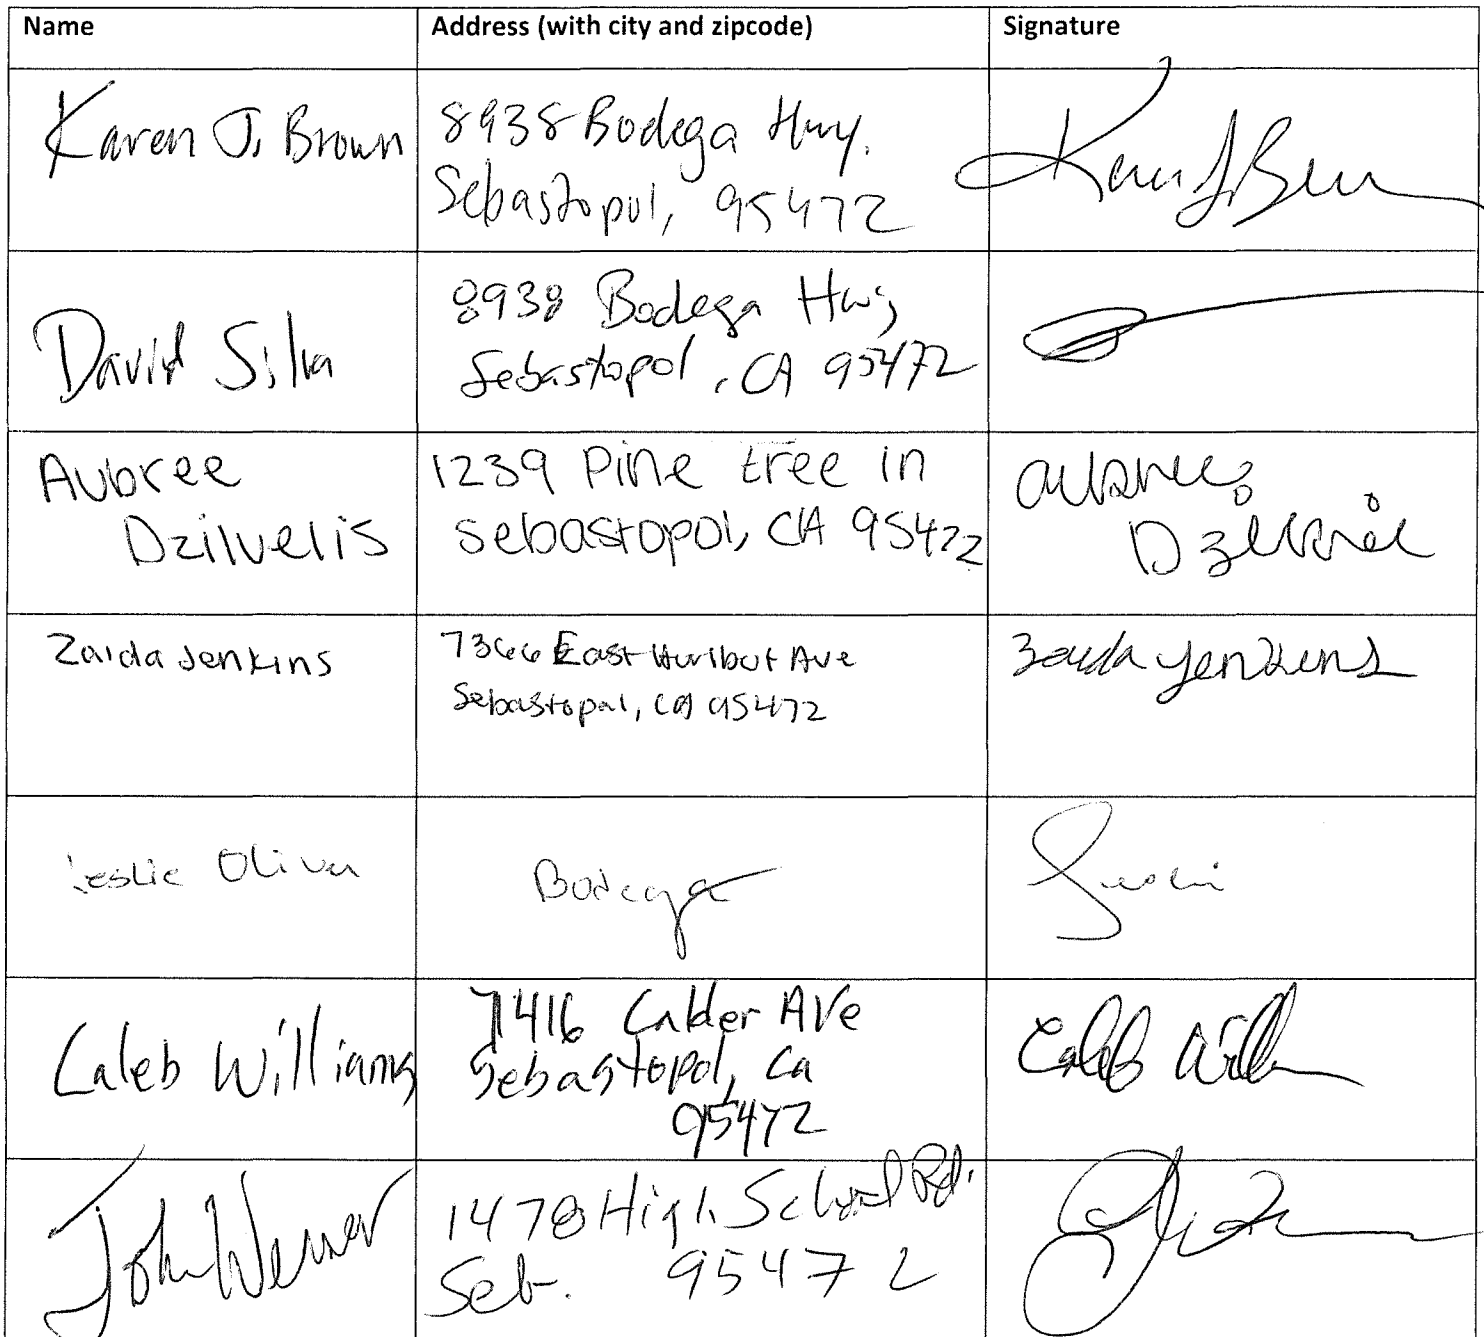 Name Address (with city and zipcode) Signature
Karen J. Brown
8938 Bodega Hwy.
Sebastopol, 95472
David Silva
8938 Bodega Hwy
Sebastopol, CA 95472
Aubree
Dzilvelis
1239 Pine tree ln
sebastopol, CA 95472
aubree
Zaida Jenkins
7366 East Hurlbut Ave
Sebastopol, CA 95472
Zaida Jenkins
Leslie Oliver
Bodega
Caleb Williams
7416 Calder AVe
Sebastopol, Ca
95472
Caleb Will
John Werner
1478 High School Rd.
Seb. 95472